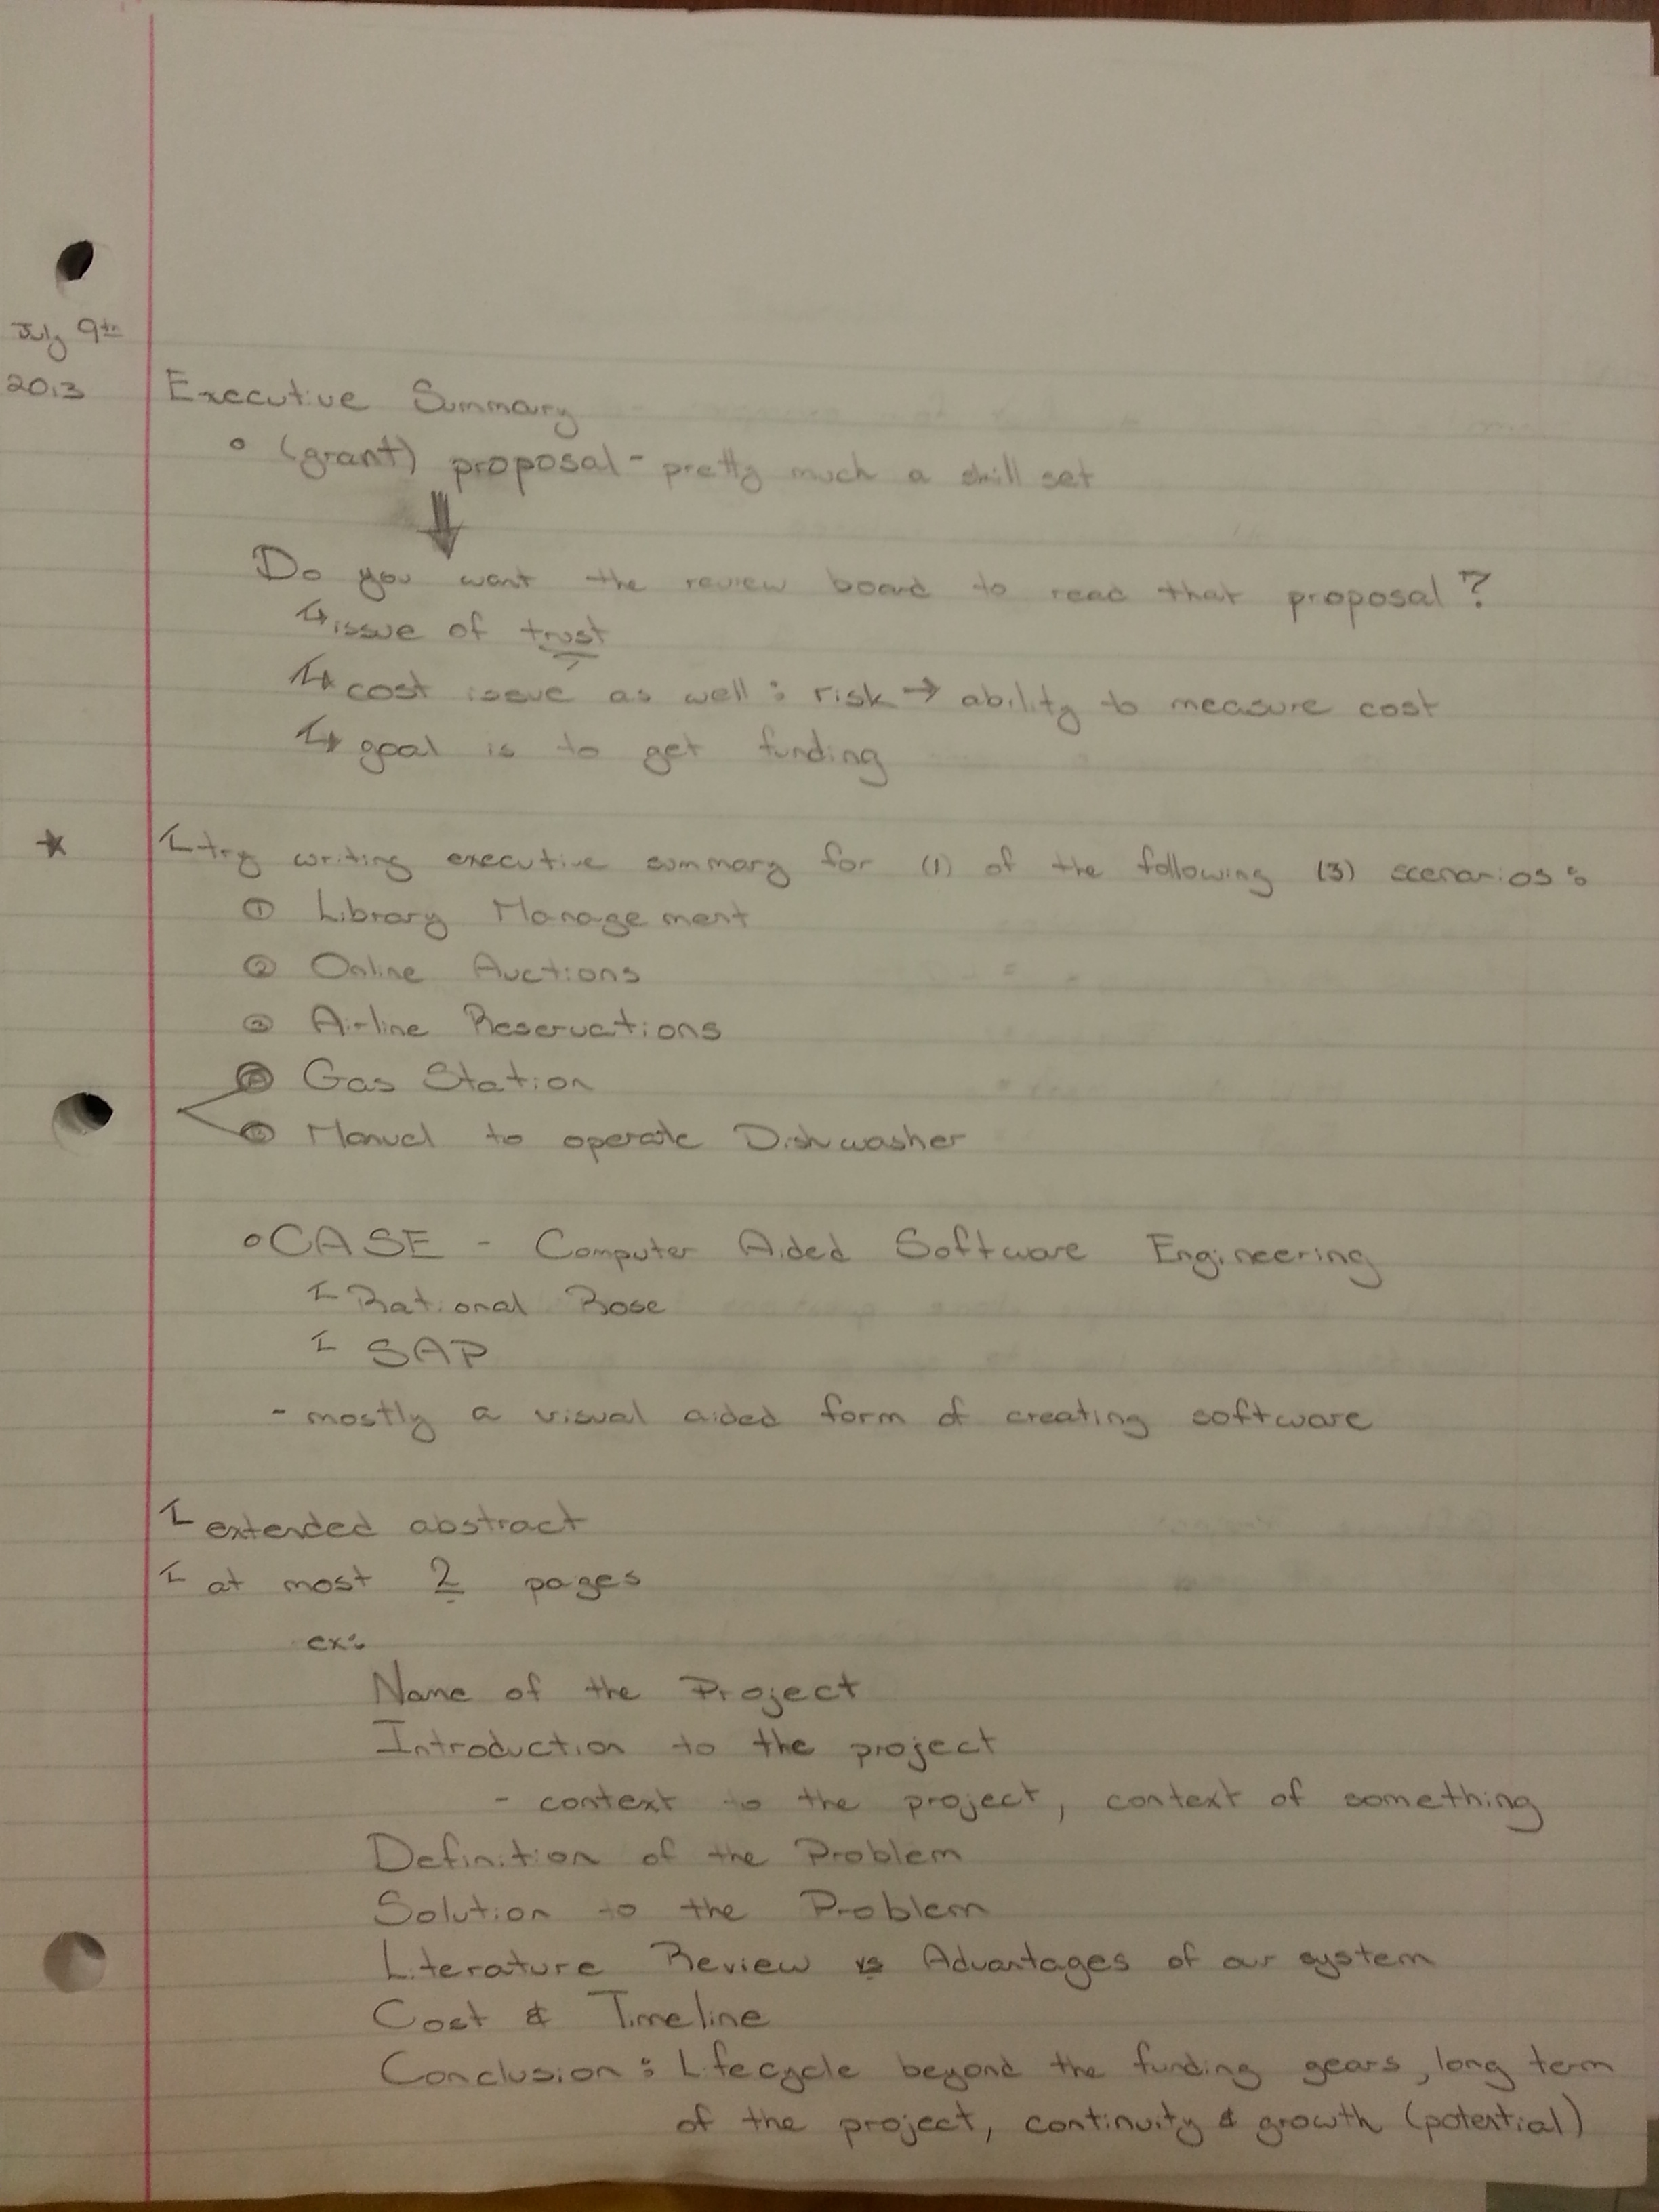 July 9th
2013
Executive Summary
° (grant) proposal - pretty much a skill set
⇓
Do you want the review board to read that proposal?
↳ issue of trust
↳ cost issue as well: risk → ability to measure cost
↳ goal is to get funding
★ try writing executive summary for (1) of the following (3) scenarios:
① Library Management
② Online Auctions
③ Airline Reservations
Gas Station
Manual to operate Dishwasher
° CASE - Computer Aided Software Engineering
Rational Rose
SAP
- mostly a visual aided form of creating software
extended abstract
at most 2 pages
ex:
Name of the Project
Introduction to the project
- context to the project, context of something
Definition of the Problem
Solution to the Problem
Literature Review vs Advantages of our system
Cost & Timeline
Conclusion: Lifecycle beyond the funding years, long term
of the project, continuity & growth (potential)